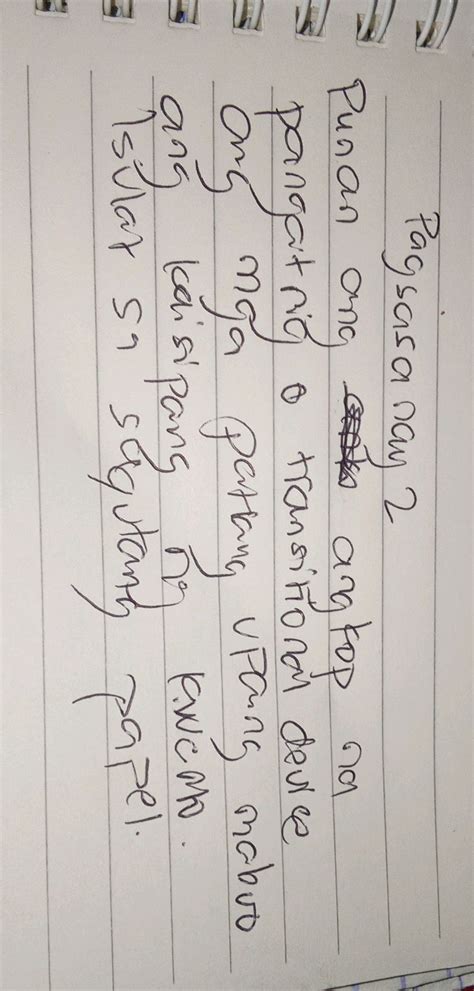 Pagsasanay 2
Punan ang angkop na
pangatnig o transitional device
ang mga patlang upang mabuo
ang kaisipang ng kwento.
Isulat sa sagutang papel.